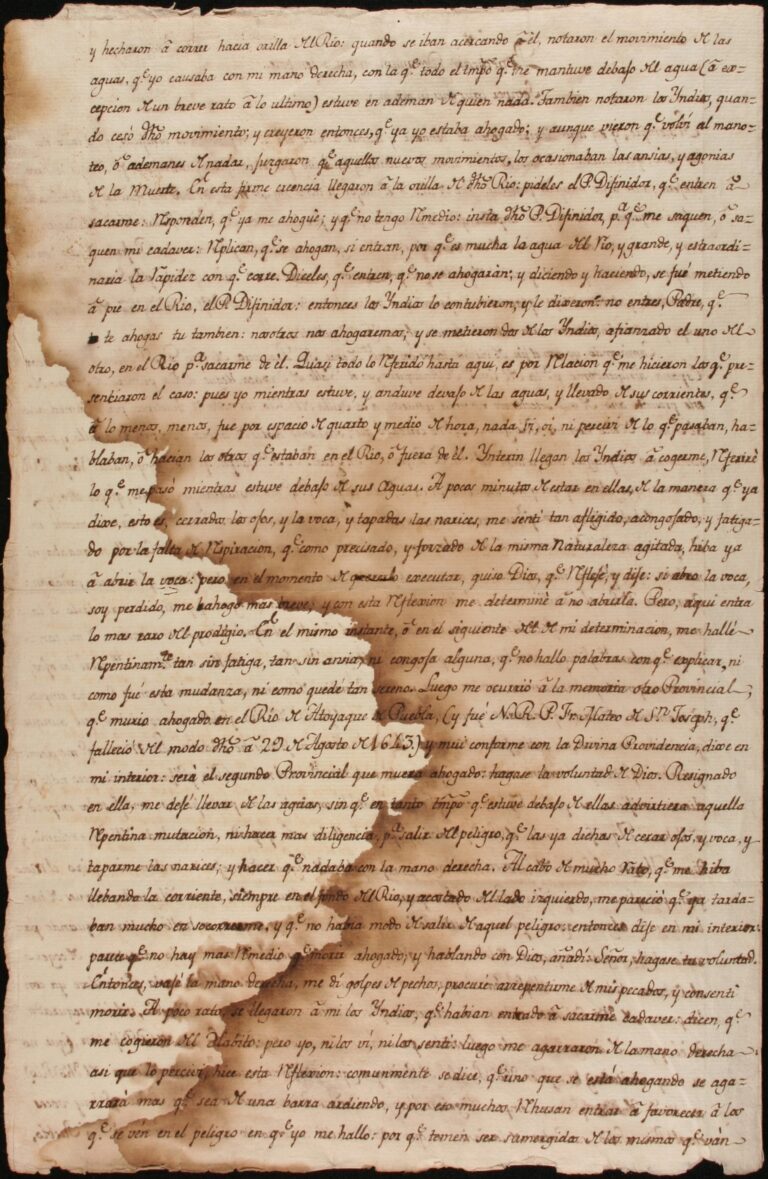 y hecharon â correr hacia orilla del Rio: quando se iban acercando â êl, notaron el movimiento de las
aguas, q.e yo causaba con mi mano derecha, con la q.e todo el tmpô q.e me mantuve debaxo del agua (â ex-
cepcion de un breve rato â lo ultimo) estuve en ademan de quien nada. Tambien notaron los Yndios, quan-
do cesó dhô movimiento; y creyeron entonces, q.e ya yo estaba ahogado; y aunque vieron q.e volvi al mano-
teo, ô ademanes de nadar, juzgaron q.e aquellos nuevos movimientos, los ocasionaban las ansias, y agonias
de la Muerte. En esta firme creencia llegaron â la orilla de dhô Rio: pideles el P. Difinidor, q.e entren â
sacarme: Responden, q.e ya me ahoguè; y q.e no tengo Remedio: insta dhô P. Difinidor, p.a q.e me saquen, ô sa-
quen mi cadaver: Replican, q.e se ahogan, si entran, por q.e es mucha la agua del Rio, y grande, y estraordi-
naria la rapidez con q.e corre. Diceles, q.e entren, q.e no se ahogaràn; y diciendo y haciendo, se fuè metiendo
â pie en el Rio, el P. Difinidor: entonces los Yndios lo contubieron; y le dixeron: no entres, Padre, q.e
te ahogas tu tambien: nosotros nos ahogaremos; y se metieron dos de los Yndios, afianzado el uno del
otro, en el Rio p.a sacarme de êl. Quasi todo lo Referido hasta aqui, es por Relacion q.e me hicieron los q.e pre-
senciaron el caso: pues yo mientras estuve, y anduve debaxo de las aguas, y llevado de sus corrientes, q.e
â lo menos, menos, fue por espacio de quarto y medio de hora, nada vi, oi, ni percivi de lo q.e pasaban, ha-
blaban, ô hacian los otros q.e estaban en el Rio, ô fuera de êl. Ynterin llegan los Yndios â cogerme, Referirè
lo q.e me pasó mientras estuve debaxo de sus Aguas. A pocos minutos de estar en ellas, de la manera q.e ya
dixe, esto es, cerrados los ojos, y la voca, y tapadas las narices, me senti tan afligido, acongojado, y fatiga-
do por la falta de Respiracion, q.e como precisado, y forzado de la misma Naturaleza agitada, hiba ya
â abrir la voca: pero en el momento de executar, quiso Dios, q.e Reflejé, y dije: si abro la voca,
soy perdido, me ahogo mas breve; y con esta Reflexion me determinè â no abrirla. Pero, aqui entra
lo mas raro del prodigio. En el mismo instante, ô en el siguiente de mi determinacion, me hallé
Repentinam.te tan sin fatiga, tan sin ansia, ni congoja alguna, q.e no hallo palabras con q.e explicar, ni
como fuè esta mudanza, ni como quedè tan sereno. Luego me ocurriò â la memoria otro Provincial,
q.e murio ahogado en el Rio de Atoyaque de Puebla, (y fuè N. R. P. Fr. Mateo de S.n Joseph, q.e
falleciò del modo dhô â 29 de Agosto de 1643.) y mui conforme con la Divina Providencia, dixe en
mi interior: serà el segundo Provincial que muera ahogado: hagase la voluntad de Dios. Resignado
en ella, me dejé llevar de las aguas, sin q.e en tanto tmpô q.e estuve debaxo de ellas advirtiera aquella
Repentina mutacion, ni hacer mas diligencia, p.a salir del peligro, q.e las ya dichas de cerrar ojos, y voca, y
taparme las narices; y hacer q.e nadaba con la mano derecha. Al cabo de mucho rato, q.e me hiba
llebando la corriente, siempre en el fondo del Rio, y acostado del lado izquierdo, me pareciò q.e ya tarda-
ban mucho en socorrerme, y q.e no habia modo de salir de aquel peligro: entonces dije en mi interior:
parece q.e no hay mas Remedio q.e morir ahogado; y hablando con Dios, añadi: Señor, hagase tu voluntad.
Entonces, vajé la mano derecha, me di golpes de pechos, procuré arrepentirme de mis pecados, y consenti
morir. A poco rato, se llegaron â mi los Yndios, q.e habian entrado â sacarme cadaver: dicen, q.e
me cogieron del Abito: pero yo, ni los vi, ni los senti: luego me agarraron de la mano derecha
asi que lo percivi, hice esta Reflexion: comunmente se dice, q.e uno que se està ahogando se aga-
rrarà mas q.e sea de una barra ardiendo, y por eso muchos Rehusan entrar â favorecer â los
q.e se vên en el peligro en q.e yo me hallo: por q.e temen ser sumergidos de los mismos q.e vàn